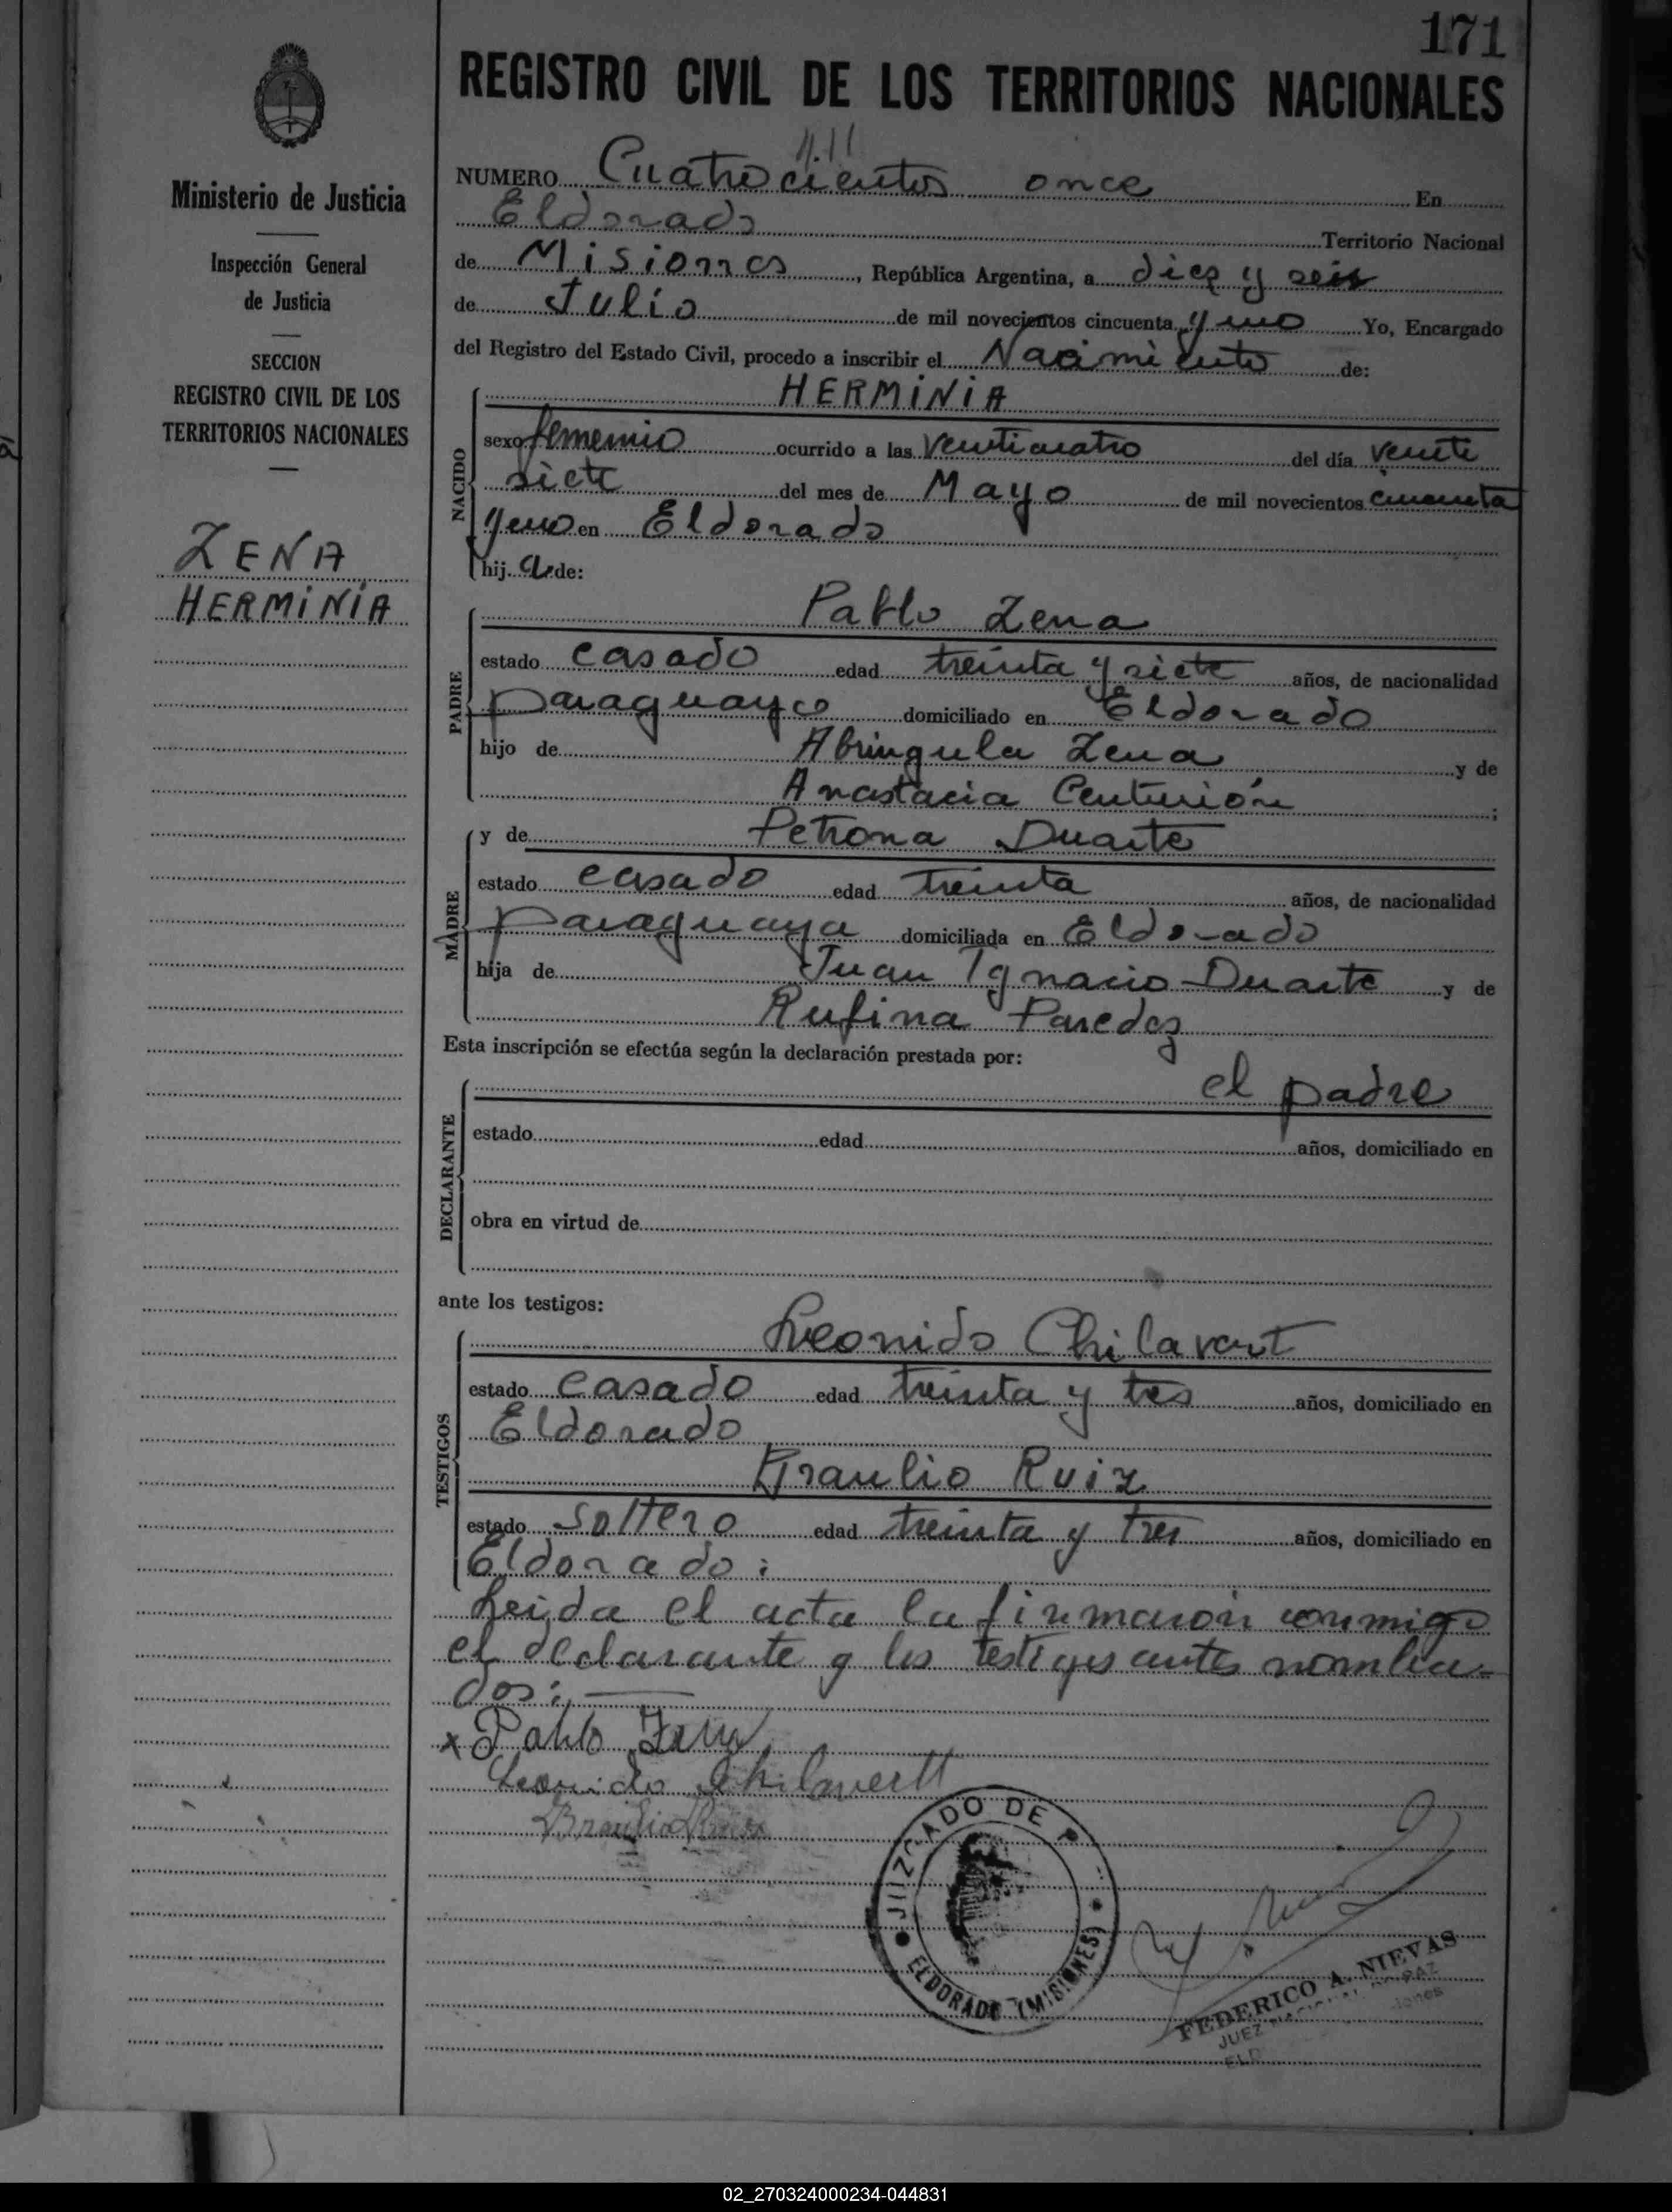 171
REGISTRO CIVIL DE LOS TERRITORIOS NACIONALES
Ministerio de Justicia
Inspección General
de Justicia
SECCION
REGISTRO CIVIL DE LOS
TERRITORIOS NACIONALES
ZENA
HERMINIA
411
NUMERO Cuatrocientos once En
Eldorado Territorio Nacional
de Misiones, República Argentina, a diez y seis
de Julio de mil novecientos cincuenta y uno Yo, Encargado
del Registro del Estado Civil, procedo a inscribir el Nacimiento de:
NACIDO
HERMINIA
sexo femenino ocurrido a las Venticuatro del día veinte
siete del mes de Mayo de mil novecientos cincuenta
y uno en Eldorado
hij a de:
PADRE
Pablo Zena
estado casado edad treinta y siete años, de nacionalidad
paraguayo domiciliado en Eldorado
hijo de Abringula Zena y de
Anastacia Centurión ;
MADRE
y de Petrona Duarte
estado casado edad treinta años, de nacionalidad
paraguaya domiciliada en Eldorado
hija de Juan Ignacio Duarte y de
Rufina Paredes
Esta inscripción se efectúa según la declaración prestada por:
DECLARANTE
el padre
estado edad años, domiciliado en
obra en virtud de
ante los testigos:
TESTIGOS
Leonido Chilavert
estado casado edad treinta y tres años, domiciliado en
Eldorado
Braulio Ruiz
estado soltero edad treinta y tres años, domiciliado en
Eldorado:
Leida el acta la firmaron conmigo
el declarante y los testigos antes nombra-
dos:
x Pablo Zena
Leonido Chilavertt
Braulio
JUZGADO DE P
ELDORADO (MISIONES)
FEDERICO A. NIEVAS
JUEZ NACIONAL DE PAZ
02_270324000234-044831